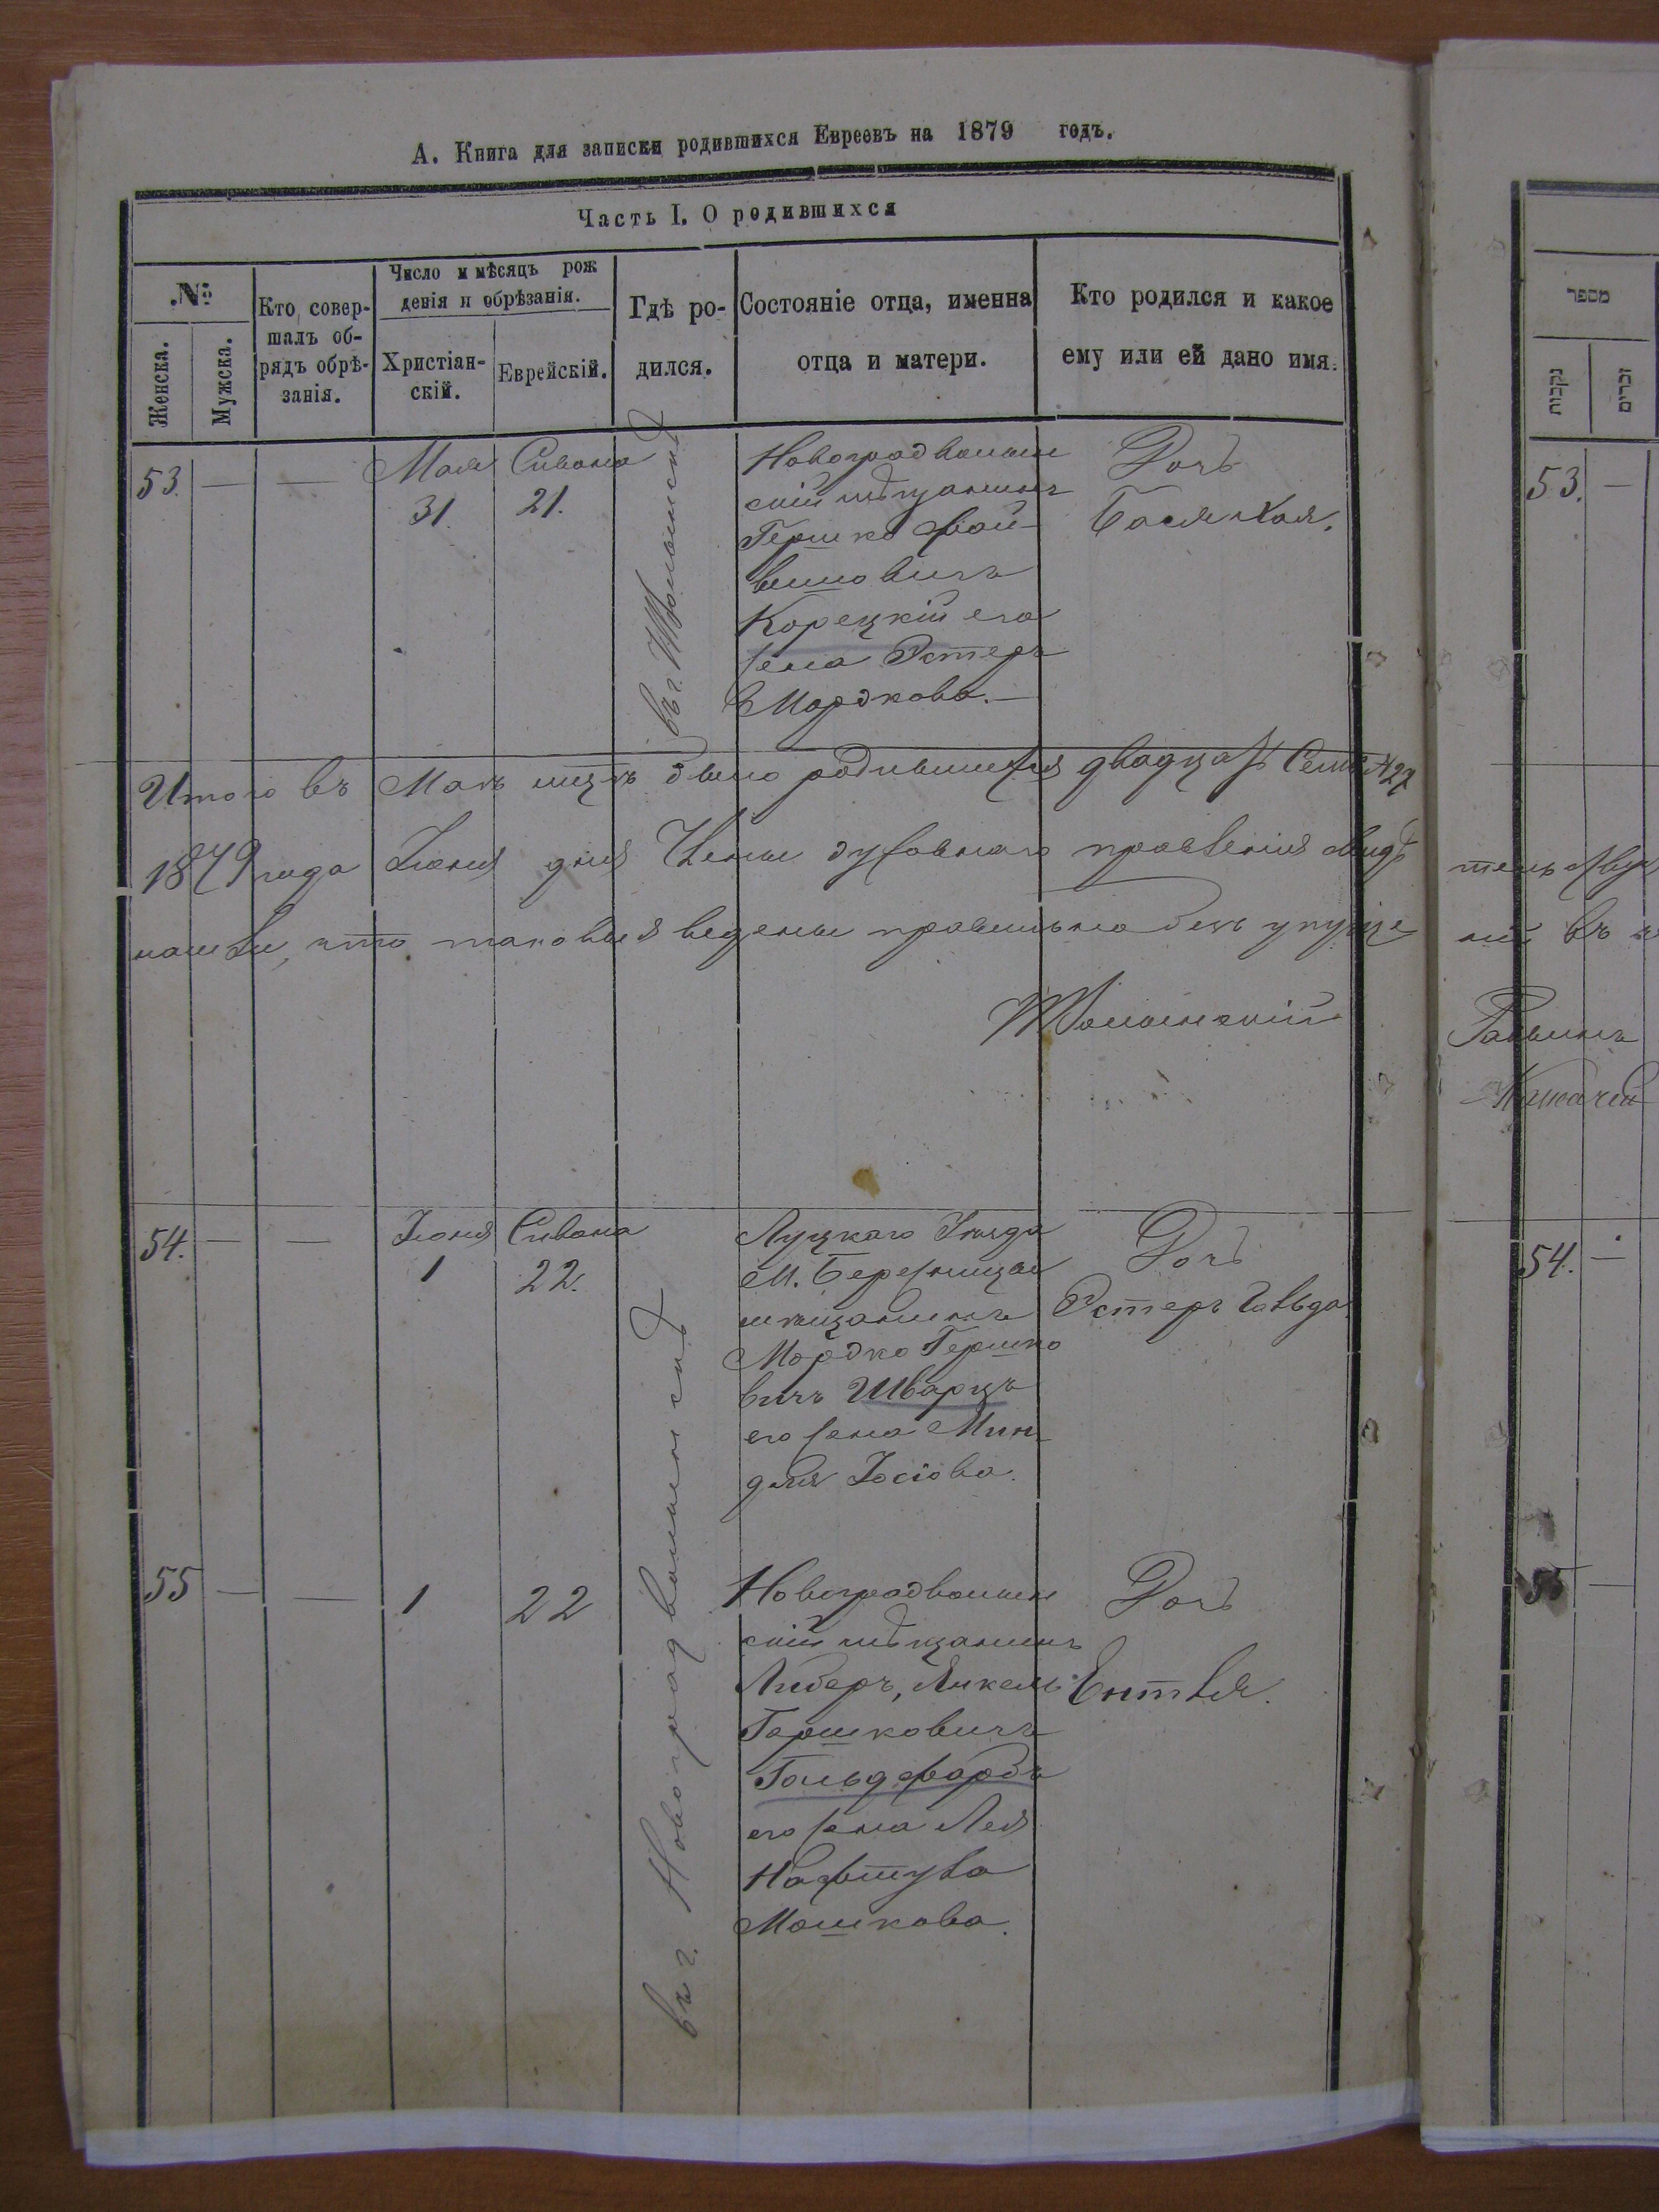 А. Книга для записки родившихся Евреевъ на 1879 годъ.
Часть I. О родившихся
№
Женска.
Мужска.
Кто совер-
шалъ об-
рядъ обрѣ-
занія.
Число и мѣсяцъ рож
денія и обрѣзанія.
Христіан-
скій.
Еврейскій.
Гдѣ ро-
дился.
Состояніе отца, именна
отца и матери.
Кто родился и какое
ему или ей дано имя.
53. — — Мая Сивана
31. 21.
Новоградволын
скій мѣщанинъ
Гершко Фай-
вишовичъ
Корецкій его
жена Эстеръ
Мордкова.—
Дочь
Бася Хая.
Итого въ Маѣ мцѣ было родившихся двадцать Семь №27
1879 года Іюня дня Члены духовнаго правленія свидѣ
что таковыя ведены правильно безъ упуще
Волынскій
54. — — Іюня Сивана
1 22.
Луцкаго Уѣзда
М. Бережницы
мѣщанинъ
Мордко Гершко
вичъ Шварцъ
его жена Мин-
для Іосіова.
Дочь
Эстеръ Голда.
55 — — 1 22
въ г. Новоградволынскѣ
Новоградволын
скій мѣщанинъ
Либеръ, Янкель
Гершковичъ
Гольдфарбъ
его жена Лея
Мошкова.
Дочь
Ентля.
מספר
נקבות
זכרים
53. —
ній въ
Раввинъ
54. —
55 —